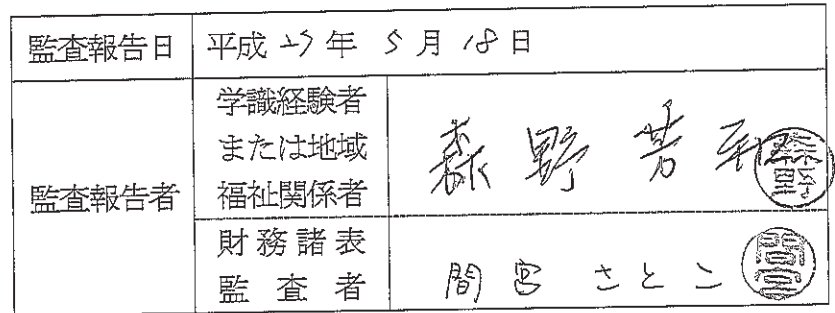 監査報告日 平成27年5月18日
学識経験者
または地域
監査報告者 福祉関係者 森野芳
森野
財務諸表
監査者 間宮さとこ
間宮